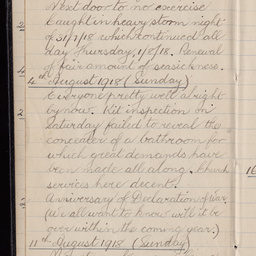 Next door to no exercise
Caught in heavy storm night
of 31/7/18 which continued all
day Thursday, 1/8/18. Renewal
of fair amount of seasickness.
4th August 1918 (Sunday)
Everyone pretty well alright
by now. Kit inspection on
Saturday failed to reveal the
concealer of a bathroom for
which great demands have
been made all along. Church
service here decent.
Anniversary of Declaration of War.
(We all want to know will it be
over within the coming year.)
11th August 1918 (Sunday)
16